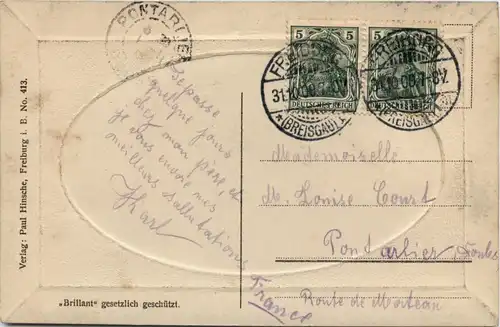 PONTARLIER
5 5
FREIBURG FREIBURG
31.10.06
DEUTSCHES REICH
*(BREISGAU) (BREISGAU)
passe
quelque jours
chez mon père et
je vous envoie mes
meilleurs salutations
Karl
Mademoiselle
M. Louise Court
Pontarlier Doubs
Route de Morteau
France
Verlag: Paul Hinsche, Freiburg i. B. No. 413.
„Brillant" gesetzlich geschützt.